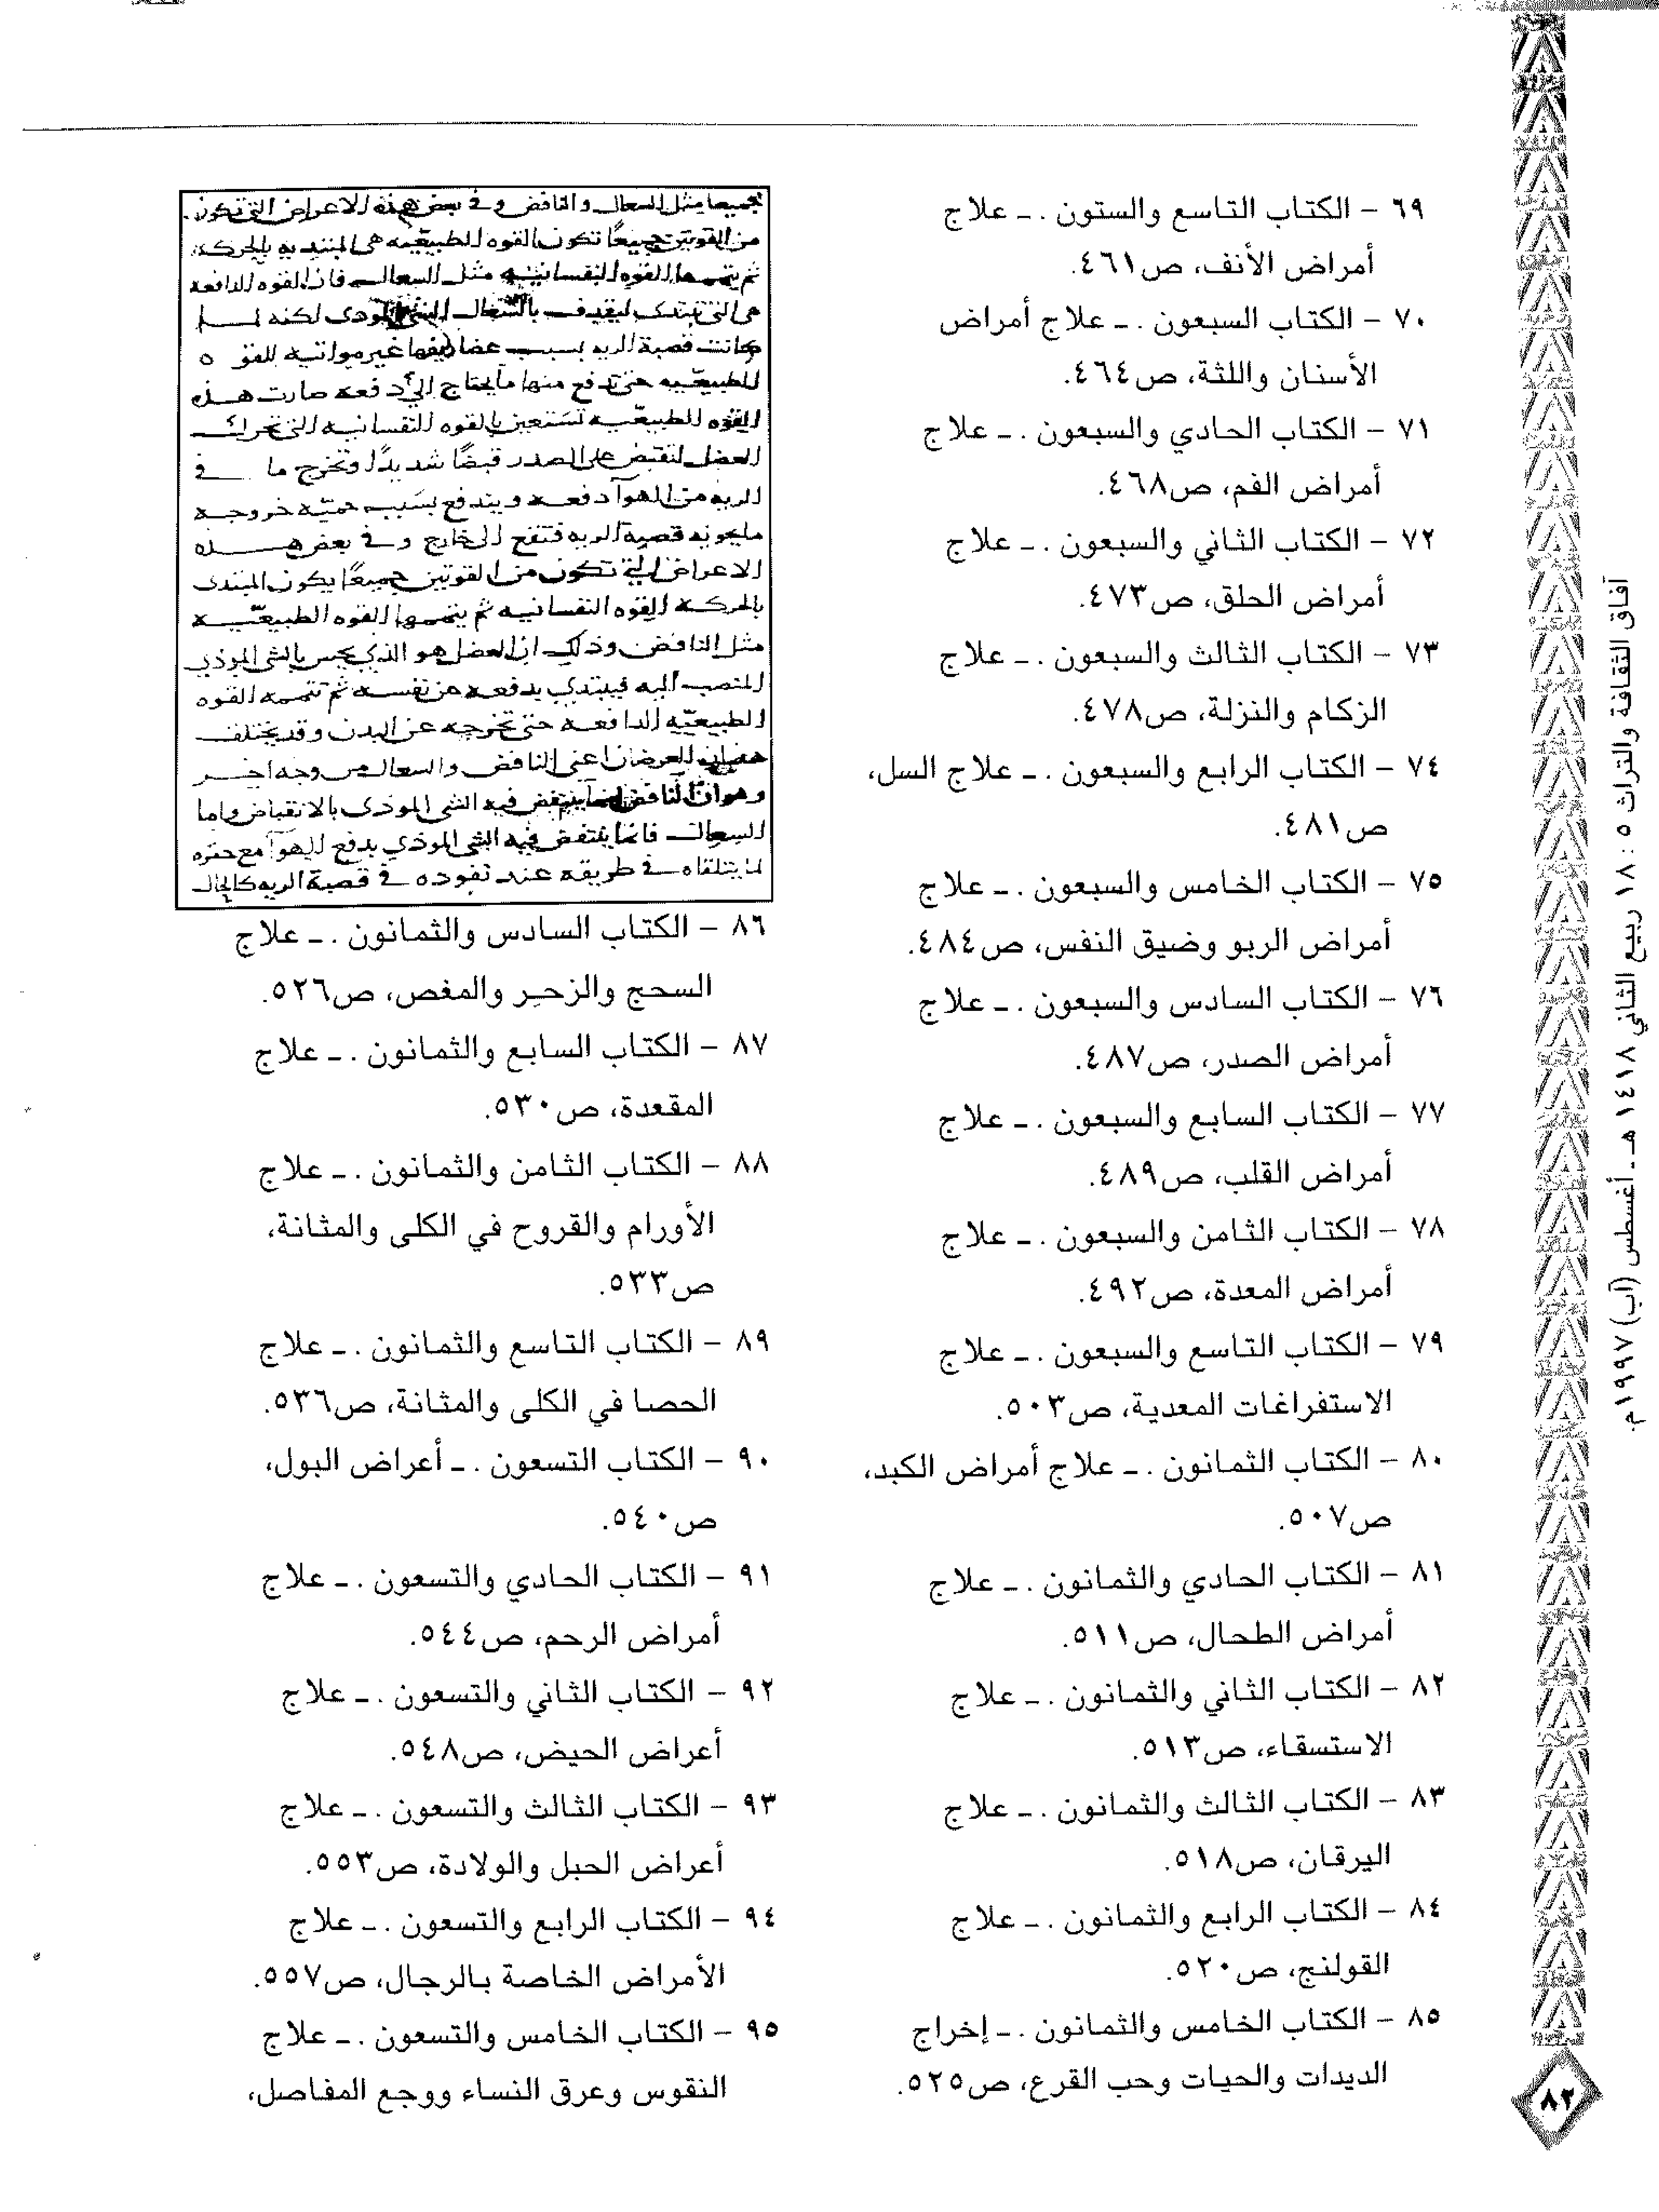 ٦٩ – الكتاب التاسع والستون . ـ علاج
أمراض الأنف، ص٤٦١.
٧٠ – الكتاب السبعون . ـ علاج أمراض
الأسنان واللثة، ص٤٦٤.
٧١ – الكتاب الحادي والسبعون . ـ علاج
أمراض الفم، ص٤٦٨.
٧٢ – الكتاب الثاني والسبعون . ـ علاج
أمراض الحلق، ص٤٧٣.
٧٣ – الكتاب الثالث والسبعون . ـ علاج
الزكام والنزلة، ص٤٧٨.
٧٤ – الكتاب الرابع والسبعون . ـ علاج السل،
ص٤٨١.
٧٥ – الكتاب الخامس والسبعون . ـ علاج
أمراض الربو وضيق النفس، ص٤٨٤.
٧٦ – الكتاب السادس والسبعون . ـ علاج
أمراض الصدر، ص٤٨٧.
٧٧ – الكتاب السابع والسبعون . ـ علاج
أمراض القلب، ص٤٨٩.
٧٨ – الكتاب الثامن والسبعون . ـ علاج
أمراض المعدة، ص٤٩٢.
٧٩ – الكتاب التاسع والسبعون . ـ علاج
الاستفراغات المعدية، ص٥٠٣.
٨٠ – الكتاب الثمانون . ـ علاج أمراض الكبد،
ص٥٠٧.
٨١ – الكتاب الحادي والثمانون . ـ علاج
أمراض الطحال، ص٥١١.
٨٢ – الكتاب الثاني والثمانون . ـ علاج
الاستسقاء، ص٥١٣.
٨٣ – الكتاب الثالث والثمانون . ـ علاج
اليرقان، ص٥١٨.
٨٤ – الكتاب الرابع والثمانون . ـ علاج
القولنج، ص٥٢٠.
٨٥ – الكتاب الخامس والثمانون . ـ إخراج
الديدات والحيات وحب القرع، ص٥٢٥.
جميعا مثل السعال والنافض وفي بعض هذه الاعراض التي تكون
من القوتين جميعًا تكون القوه الطبيعيّه هي المبتديه بالحركه
ثم يتممها القوه النفسانيه مثل السعال فان القوه الدافعه
هي التي تبتدى الشى الموذى لكنه لما
كانت قصبة الريه بسبب غير مواتيه للقوه
الطبيعيّه حتى تدفع منها ما يحتاج الى دفعه صارت هذه
القوه الطبيعيّه تستعين بالقوه النفسانيه التي تحرك
العضل لتقبض على الصدر قبضًا شديدًا وتخرج ما في
الريه من الهوآ دفعه ويندفع بسبب خروجه
ما يحويه قصبة الريه الى خارج وفي بعض هذه
الاعراض التي تكون من القوتين جميعًا يكون المبتدى
بالحركه القوه النفسانيه ثم يتممها القوه الطبيعيّه
مثل النافض وذلك ان العضل هو الذي يحس بالشى الموذي
المنصب اليه فيبتدي يدفعه عن نفسه ثم تتممه القوه
الطبيعيّه الدافعه حتى تخرجه عن البدن وقد يختلف
هذان العرضان اعني النافض والسعال من وجه اخر
وهو ان النافض ينتفض فيه الشى الموذى بالانقباض واما
السعال فانما ينتفض فيه الشى الموذي بدفع الهوآ مع
لما يتلقاه في طريقه عند نفوذه في قصبة الريه كالحال
٨٦ – الكتاب السادس والثمانون . ـ علاج
السحج والزحير والمغص، ص٥٢٦.
٨٧ – الكتاب السابع والثمانون . ـ علاج
المقعدة، ص٥٣٠.
٨٨ – الكتاب الثامن والثمانون . ـ علاج
الأورام والقروح في الكلى والمثانة،
ص٥٣٣.
٨٩ – الكتاب التاسع والثمانون . ـ علاج
الحصا في الكلى والمثانة، ص٥٣٦.
٩٠ – الكتاب التسعون . ـ أعراض البول،
ص٥٤٠.
٩١ – الكتاب الحادي والتسعون . ـ علاج
أمراض الرحم، ص٥٤٤.
٩٢ – الكتاب الثاني والتسعون . ـ علاج
أعراض الحيض، ص٥٤٨.
٩٣ – الكتاب الثالث والتسعون . ـ علاج
أعراض الحبل والولادة، ص٥٥٣.
٩٤ – الكتاب الرابع والتسعون . ـ علاج
الأمراض الخاصة بالرجال، ص٥٥٧.
٩٥ – الكتاب الخامس والتسعون . ـ علاج
النقوس وعرق النساء ووجع المفاصل،
آفاق الثقافة والتراث ٥ : ١٨ ربيع الثاني ١٤١٨ هـ ـ أغسطس (آب) ١٩٩٧م.
٨٢